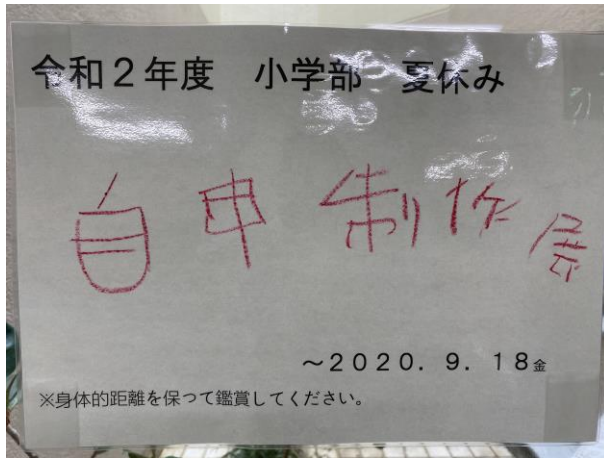 令和２年度　小学部　夏休み
自由制作展
～２０２０．９．１８金
※身体的距離を保って鑑賞してください。